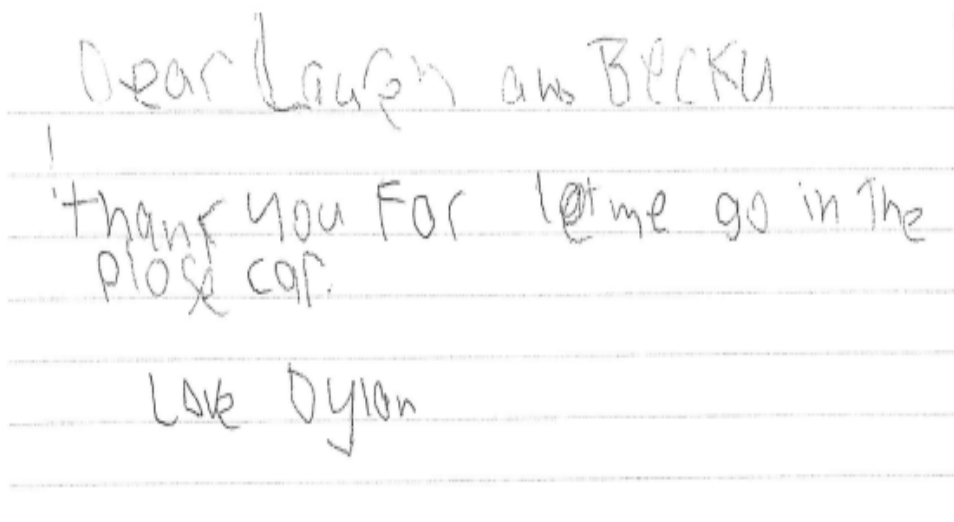 Dear Lauren and Becky
thank you For let me go in The
plose car.
Love Dylan